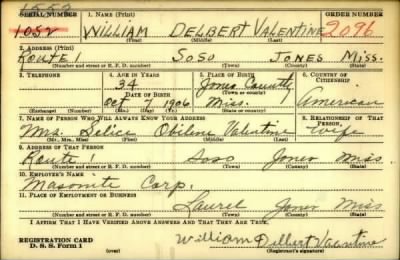 1550
SERIAL NUMBER 1. NAME (Print) ORDER NUMBER
1052 WILLIAM DELBERT VALENTINE 2096
(First) (Middle) (Last)
2. ADDRESS (Print)
ROUTE 1 SOSO JONES MISS.
(Number and street or R. F. D. number) (Town) (County) (State)
3. TELEPHONE 4. AGE IN YEARS 5. PLACE OF BIRTH 6. COUNTRY OF CITIZENSHIP
34 Jones County
DATE OF BIRTH (Town or county)
Oct 7 1906 Miss. American
(Exchange) (Number) (Mo.) (Day) (Yr.) (State or country)
7. NAME OF PERSON WHO WILL ALWAYS KNOW YOUR ADDRESS 8. RELATIONSHIP OF THAT PERSON
Mrs. Selice Obilene Valentine Wife
(Mr., Mrs., Miss) (First) (Middle) (Last)
9. ADDRESS OF THAT PERSON
Route 1 Soso Jones Miss
(Number and street or R. F. D. number) (Town) (County) (State)
10. EMPLOYER'S NAME
Masonite Corp.
11. PLACE OF EMPLOYMENT OR BUSINESS
Laurel Jones Miss
(Number and street or R. F. D. number) (Town) (County) (State)
I AFFIRM THAT I HAVE VERIFIED ABOVE ANSWERS AND THAT THEY ARE TRUE.
REGISTRATION CARD William Delbert Valentine
D. S. S. Form 1 (over) (Registrant's signature)